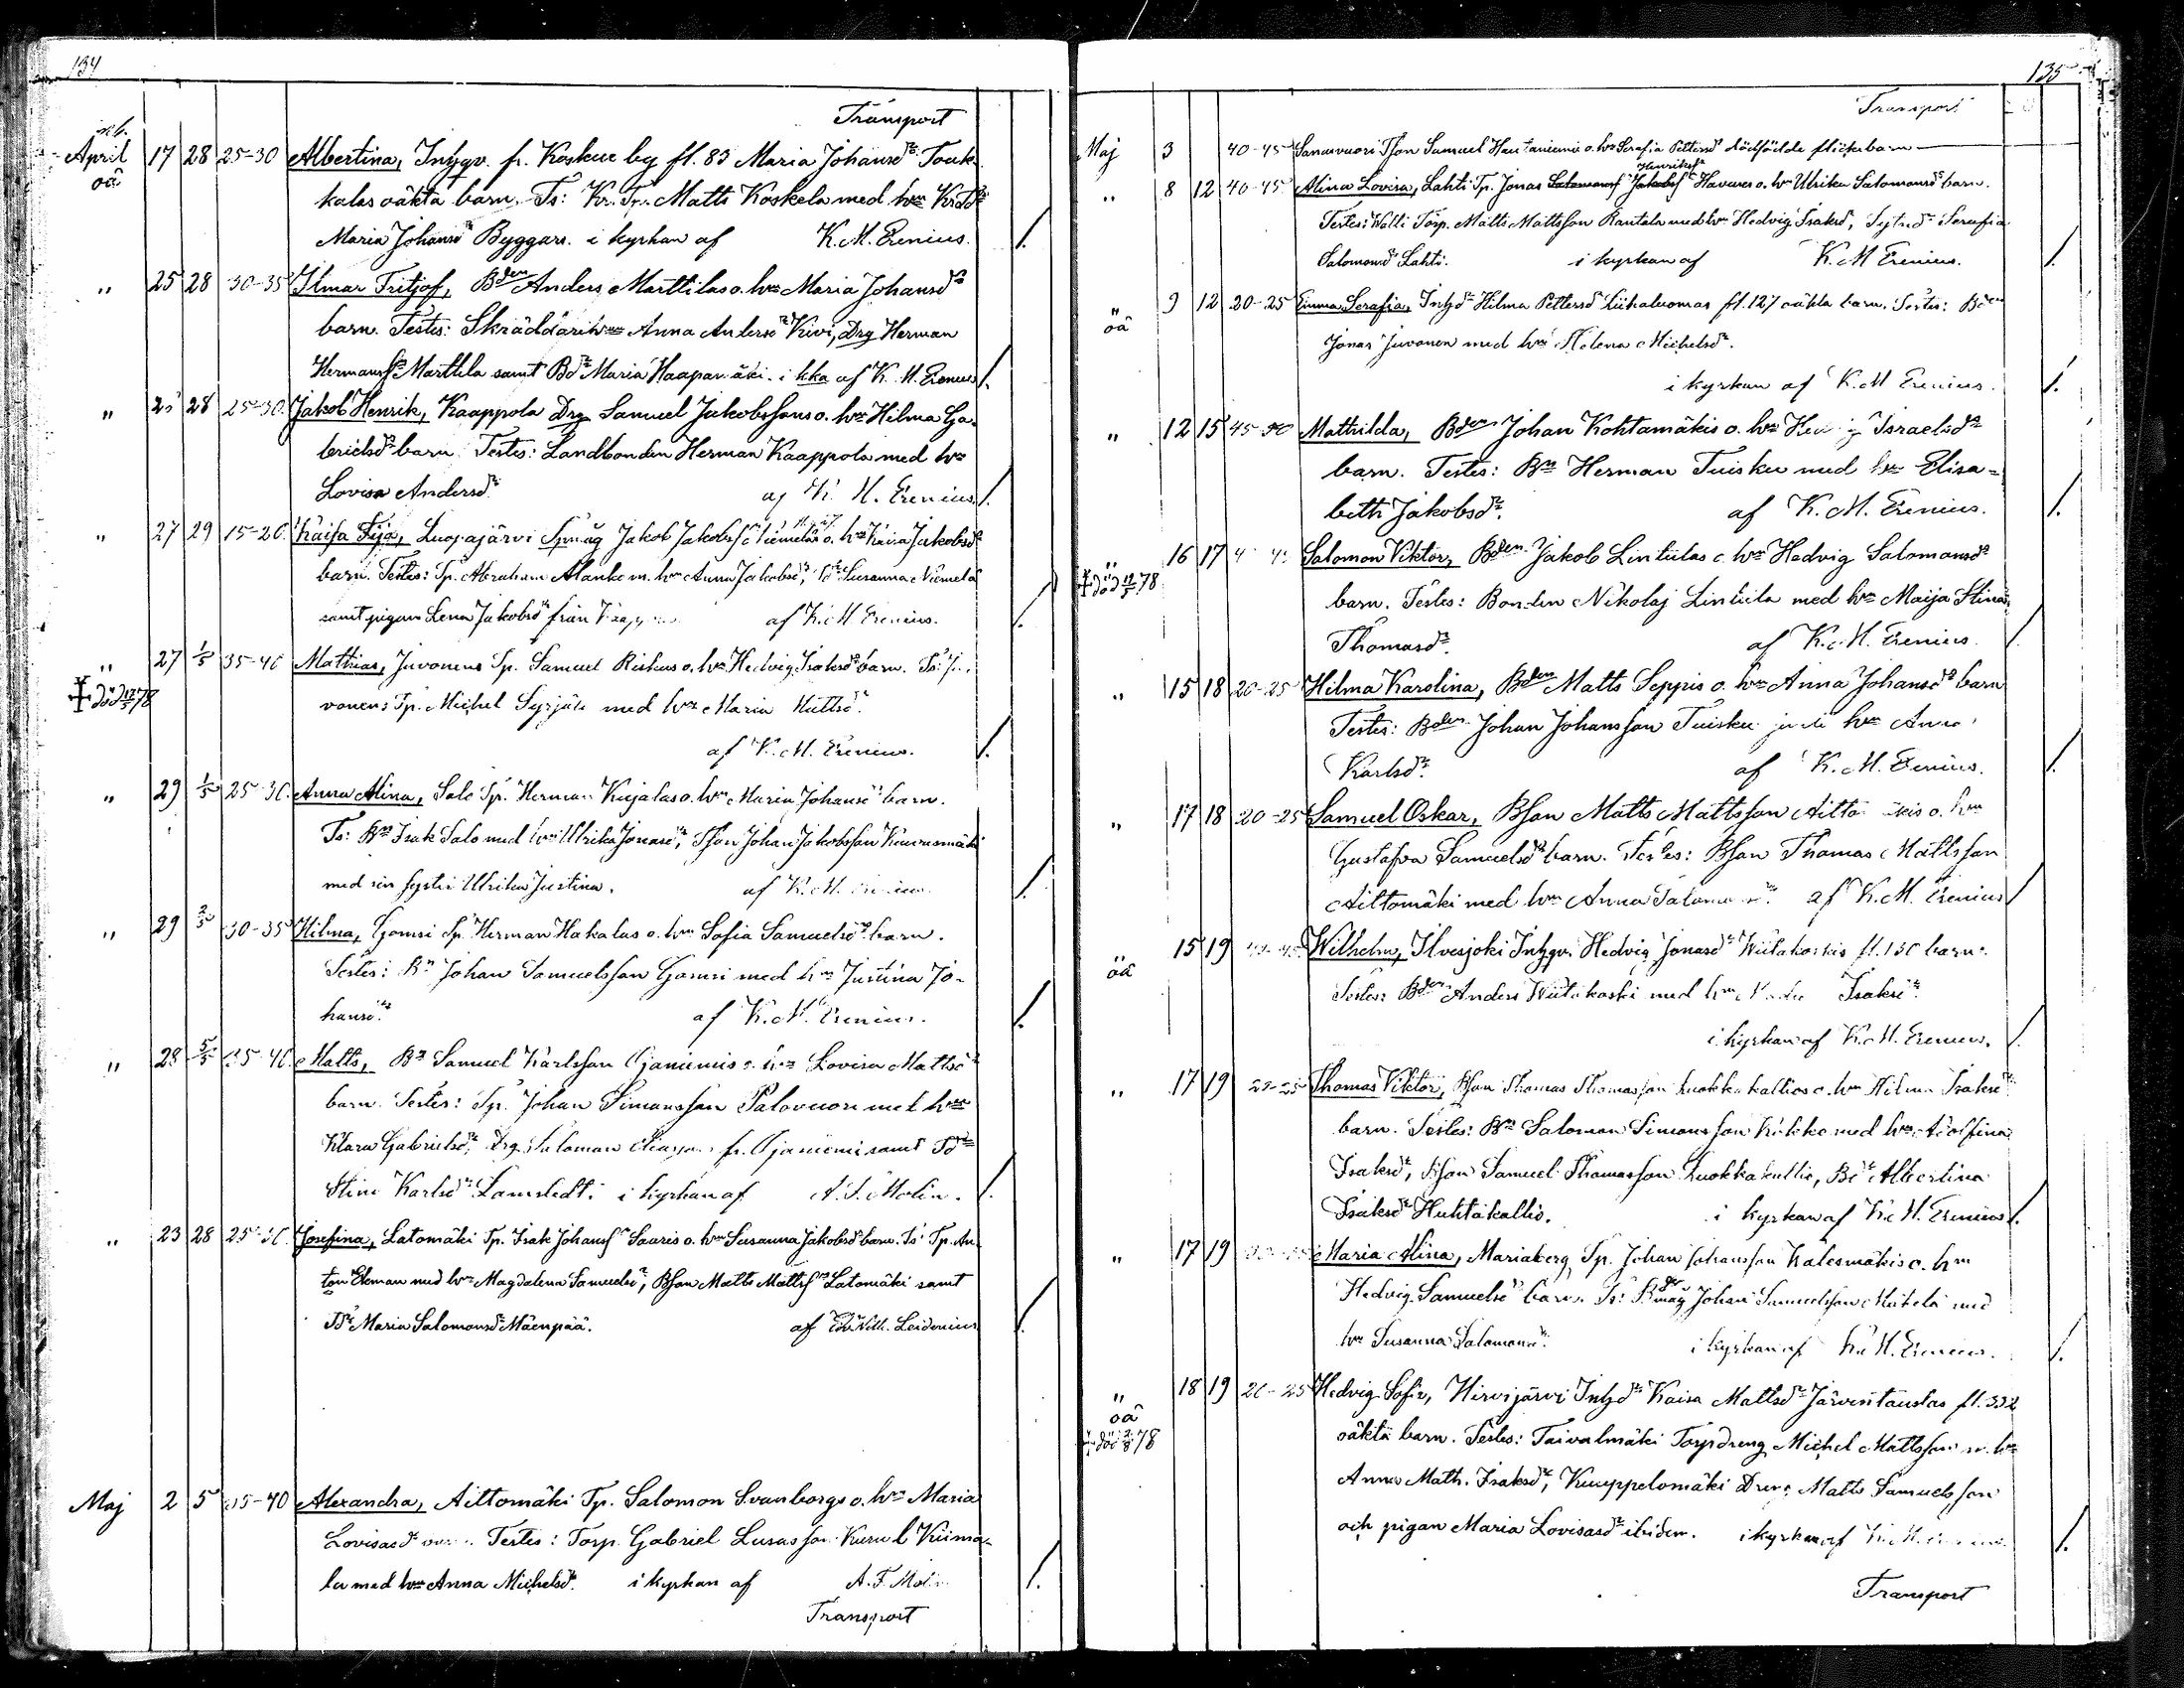 134
Transport
April 17 28 25-30 Albertina, Inhgv. fr. Koskue by fl. 83 Maria Johansdr Touk-
oä kalas oäkta barn. Ts: Kr. Tp. Matts Koskela med hru
Maria Johansdr Byggare. i kyrkan af K. M. Erenius.
" 25 28 30-35 Ilmar Fritjof, Bden Anders Marttilas o. hru Maria Johansdr
barn. Testes: Skräddarihru Anna Andersdr Kivi, Drg Herman
Hermansson Marttila samt Bdr Maria Haapamäki. i kka af K. M. Erenius
" 25 28 25-30. Jakob Henrik, Kaappola Drg Samuel Jakobssons o. hru Hilma Ga-
brielsdr barn. Testes: Landbonden Herman Kaappola med hru
Lovisa Andersdr. af K. M. Erenius
" 27 29 15-20. Kaisa Fija, Luopajärvi Jakob Jakobss Niemelä o. hru Kaisa Jakobsdr
barn. Testes: Tp. Abraham Alanko m. hru Anna Jakobsdr, Susanna Niemelä
samt pigan Lena Jakobsdr från af K. M. Erenius.
" 27 1/5 35-40 Mathias, Juvonens Tp. Samuel Riskus o. hru Hedvig Isaksdr barn. Ts: Ju-
död 78 vonens Tp. Michel Syrjälä med hru Maria Mattsdr.
af K. M. Erenius.
" 29 1/5 25-30. Anna Alina, Salo Tp. Herman Kujalas o. hru Maria Johansdr barn.
Ts: Bn Isak Salo med hru Ulrika Jonasdr, Tson Johan Jakobsson
med sin syster Ulrika Justina. af K. M. Erenius.
" 29 2/5 30-35 Hilma, Gamsi Tp. Herman Hakalas o. hru Sofia Samuelsdr barn.
Testes: Bn Johan Samuelsson Gamsi med hru Justina Jo-
hansdr. af K. M. Erenius.
" 28 5/5 35-40. Matts, Bn Samuel Karlsson Ojaniemis o. hru Lovisa Mattsdr
barn. Testes: Tp. Johan Simonsson Palovuori med hru
Klara Gabrielsdr, Drg Salomon fr. Ojaniemi samt
Stina Karlsdr Lamstedt. i kyrkan af A. F. Molin.
" 23 28 25-30. Josefina, Latomäki Tp. Isak Johanss Sauris o. hru Susanna Jakobsdr barn. Ts: Tp. An-
ton Ekman med hru Magdalena Samuelsdr, Bson Matts Mattss Latomäki samt
Bdr Maria Salomonsdr Mäenpää. af Leidenius
Maj 2 5 35-40 Alexandra, Aittomäki Tp. Salomon Svanborgs o. hru Maria
Lovisasdr barn. Testes: Torp. Gabriel Lucasson Kiima-
la med hru Anna Michelsdr. i kyrkan af A. F. Molin.
Transport
135
Transport
Maj 3 40-45 Sanasvuori Tson Samuel Hautaniemis o. hru Serafia Pettersdr dödfödde flickebarn
Henrikss
" 8 12 40-45. Alina Lovisa, Lahti Tp. Jonas Salomonss Jakobss Havunes o. hru Ulrika Salomonsdr barn.
Testes: Walli Torp. Matts Mattsson Rantala med hru Hedvig Isaksdr, Serafia
Salomonsdr Lahti. i kyrkan af K. M Erenius.
" 9 12 20-25 Emma Serafia, Inhdr Hilma Pettersdr Liikaluomas fl. 127 oäkta barn. Testes: Bden
oä Jonas Juvonen med hru Helena Michelsdr.
i kyrkan af K. M Erenius.
" 12 15 45-50 Mathilda, Bden Johan Kohtamäkis o. hru Hedvig Israelsdr
barn. Testes: Bn Herman Tuisku med hru Elisa-
beth Jakobsdr. af K. M. Erenius.
" 16 17 Salomon Viktor, Bden Jakob Lintulas o. hru Hedvig Salomonsdr
död 78 barn. Testes: Bonden Nikolaj Lintula med hru Maija Stina
Thomasdr. af K. M. Erenius.
" 15 18 20-25 Hilma Karolina, Bden Matts Seppis o. hru Anna Johansdr barn
Testes: Bden Johan Johansson Tuisku hru Anna
Karlsdr. af K. M. Erenius.
" 17 18 20-25 Samuel Oskar, Bson Matts Mattsson Aittomäkis o. hru
Gustafva Samuelsdr barn. Testes: Bson Thomas Mattsson
Aittomäki med hru Anna af K. M. Erenius
" 15 19 Wilhelm, Ilvesjoki Inhgv. Hedvig Jonasdr Wiitakoskis fl. 130 barn.
oä Testes: Bden Anders Wiitakoski med hru Isaksdr.
i kyrkan af K. M. Erenius.
" 17 19 Thomas Viktor, Bson Thomas Thomasson Luokkakallios o. hru Hilma Isaksdr
barn. Testes: Bn Salomon Simonsson med hru Adolfina
Isaksdr, Bson Samuel Thomasson Luokkakallio, Bdr Albertina
Isaksdr Huhtakallio. i kyrkan af K. M. Erenius.
" 17 19 Maria Alina, Mariaberg Tp. Johan Johansson Kalesmäkis o. hru
Hedvig Samuelsdr barn. Ts: Johan Samuelsson Mäkelä med
hru Susanna Salomonsdr. i kyrkan af K. M. Erenius.
" 18 19 20-25 Hedvig Sofia, Hirvijärvi Inhdr Kaisa Mattsdr Järventaustas fl. 332
oä oäkta barn. Testes: Taivalmäki Torpdreng Michel Mattsson m. hru
död 78 Anna Math. Isaksdr, Kuuppelomäki Dreng Matts Samuelsson
och pigan Maria Lovisasdr ibidem. i kyrkan af K. M. Erenius.
Transport